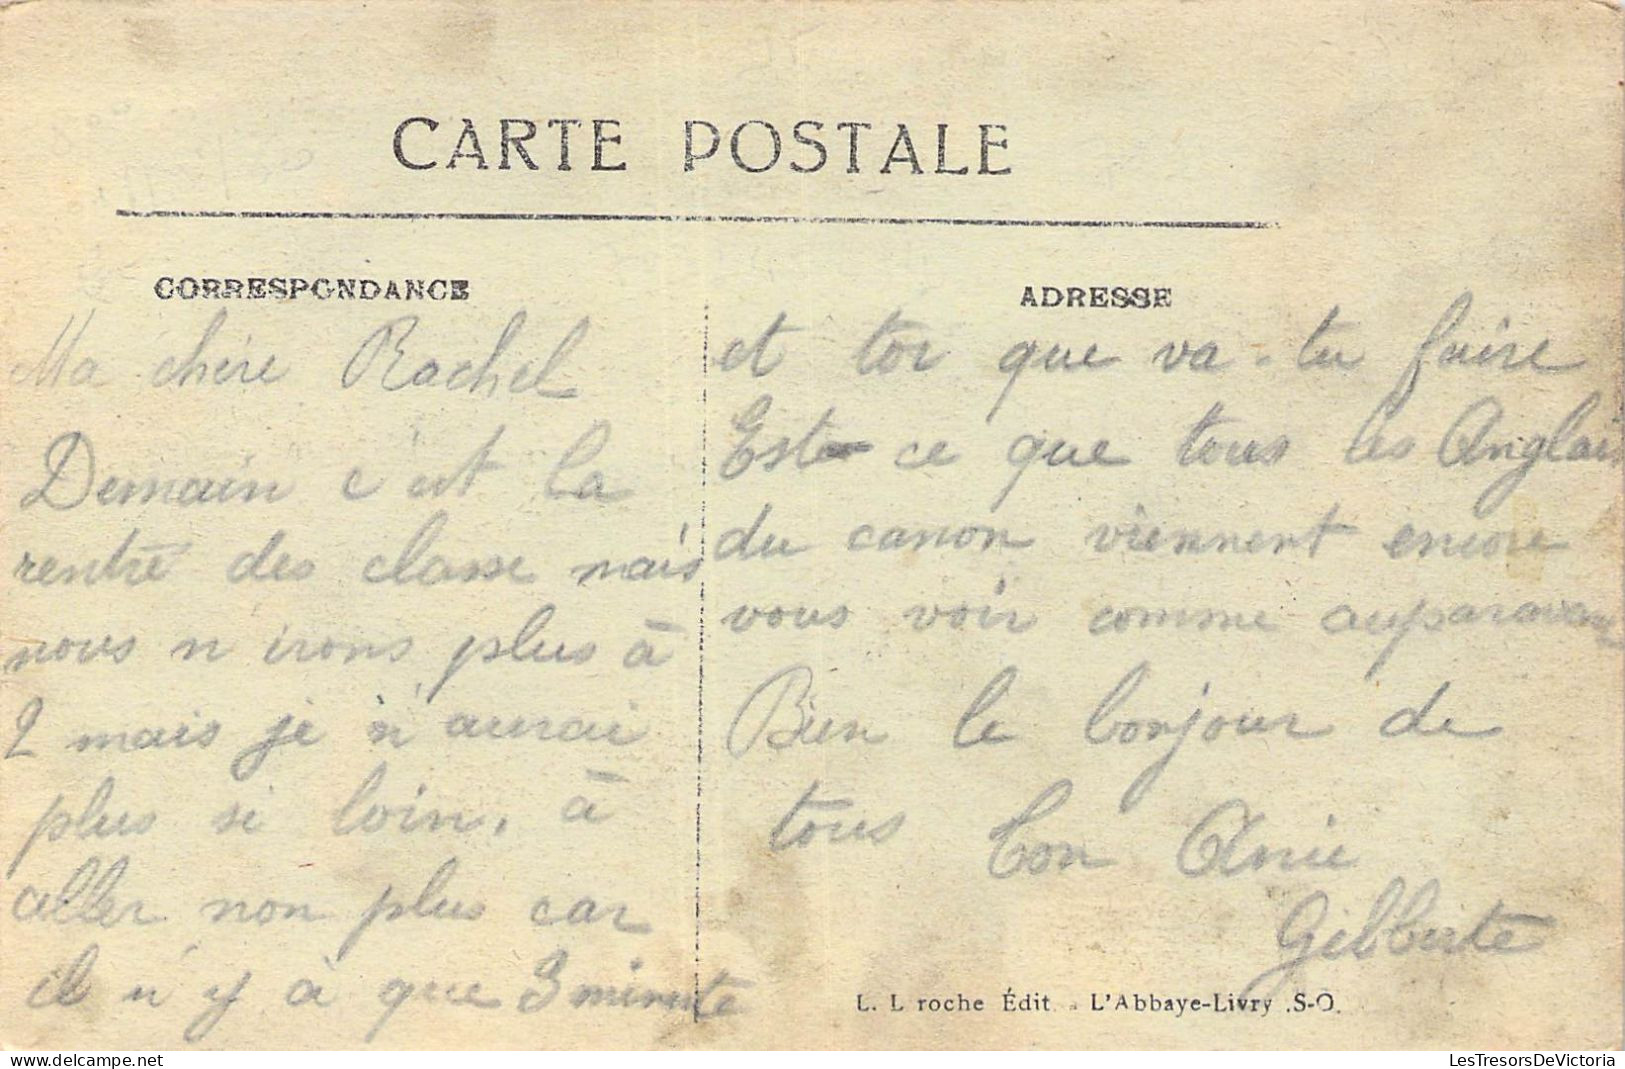 CARTE POSTALE
CORRESPONDANCE
Ma chère Rachel
Demain c'est la
rentré des classe mais
nous n'irons plus à
2 mais je n'aurai
plus si loin, à
aller non plus car
il n'y à que 3 minute
ADRESSE
et toi que va-tu faire
Est-ce que tous les Anglais
du canon viennent encore
vous voir comme auparavant
Bien le bonjour de
tous Ton Amie
Gilberte
L. L roche Édit. - L'Abbaye-Livry .S-O.
LesTresorsDeVictoria